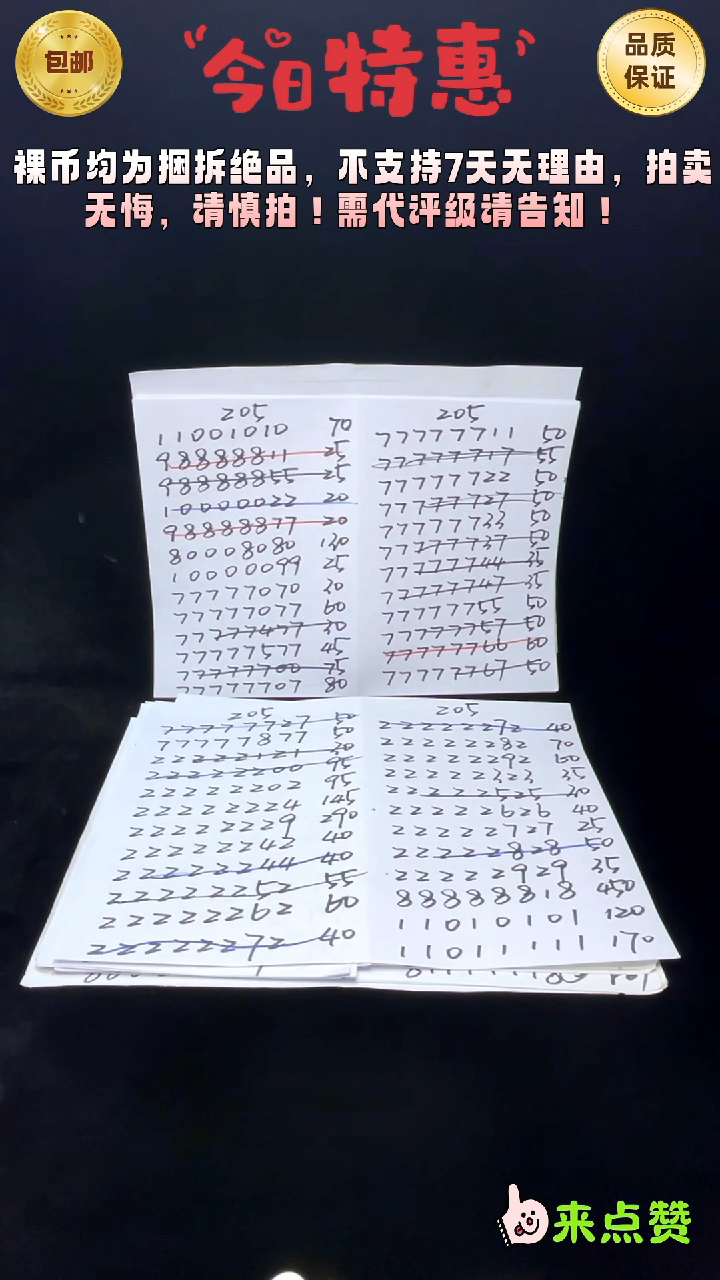 包邮
“今日特惠”
品质
保证
裸币均为捆拆绝品，不支持7天无理由，拍卖
无悔，请慎拍！需代评级请告知！
205
11001010 70
98888811 25
98888855 25
10000022 20
98888877 20
80008080 130
10000099 25
77777070 30
77777077 60
77777477 30
77777577 45
77777700 75
77777707 80
205
77777711 50
77777717 55
77777722 50
77777727 50
77777733 50
77777737 50
77777744 35
77777747 35
77777755 50
77777757 50
77777766 60
77777767 50
205
77777727 50
77777877 50
22222121 30
22222200 95
22222202 95
22222224 145
22222229 290
22222242 40
22222244 40
22222252 55
22222262 60
22222272 40
205
22222272 40
22222282 70
22222292 60
22222323 35
22222525 30
22222626 40
22222727 25
22222828 50
22222929 35
88888818 450
11010101 120
11011111 170
来点赞